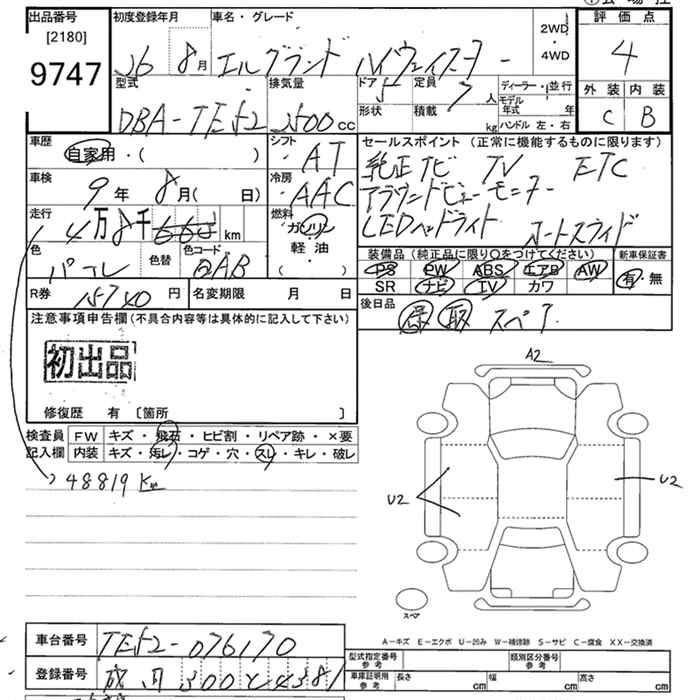 出品番号 初度登録年月 車名・グレード 2WD・4WD 評価点
[2180]
9747 26 8月 エルグランド ハイウェイスター 4
型式 排気量 ドア 5 定員 7人 ディーラー・並行
DBA-TE52 2500cc 形状 積載 kg モデル年式 年 ハンドル 左・右
外装 内装
C B
車歴 自家用・( ) シフト AT
セールスポイント (正常に機能するものに限ります)
純正ナビ TV ETC
車検 9年 8月( 日) 冷房 AAC
アラウンドビューモニター
走行 4万8千 km 燃料 ガソリン 軽油 ( )
LEDヘッドライト オートスライド
色 パコレ 色替 色コード QAB
装備品 (純正品に限り○をつけてください) 新車保証書
PS PW ABS エアB AW 有・無
SR ナビ TV カワ
R券 15740円 名変期限 月 日
後日品 保 取 スペア
注意事項申告欄 (不具合内容等は具体的に記入して下さい)
初出品
修復歴 有 〔箇所 〕
検査員 FW キズ・飛石・ヒビ割・リペア跡・×要
記入欄 内装 キズ・汚レ・コゲ・穴・スレ・キレ・破レ
48819 Km
A2
U2
U2
スペア
A-キズ E-エクボ U-凹み W-補修跡 S-サビ C-腐食 XX-交換済
車台番号 TE52-076170
型式指定番号 参考 類別区分番号 参考
登録番号 300 4581
車庫証明用 参考 長さ cm 幅 cm 高さ cm